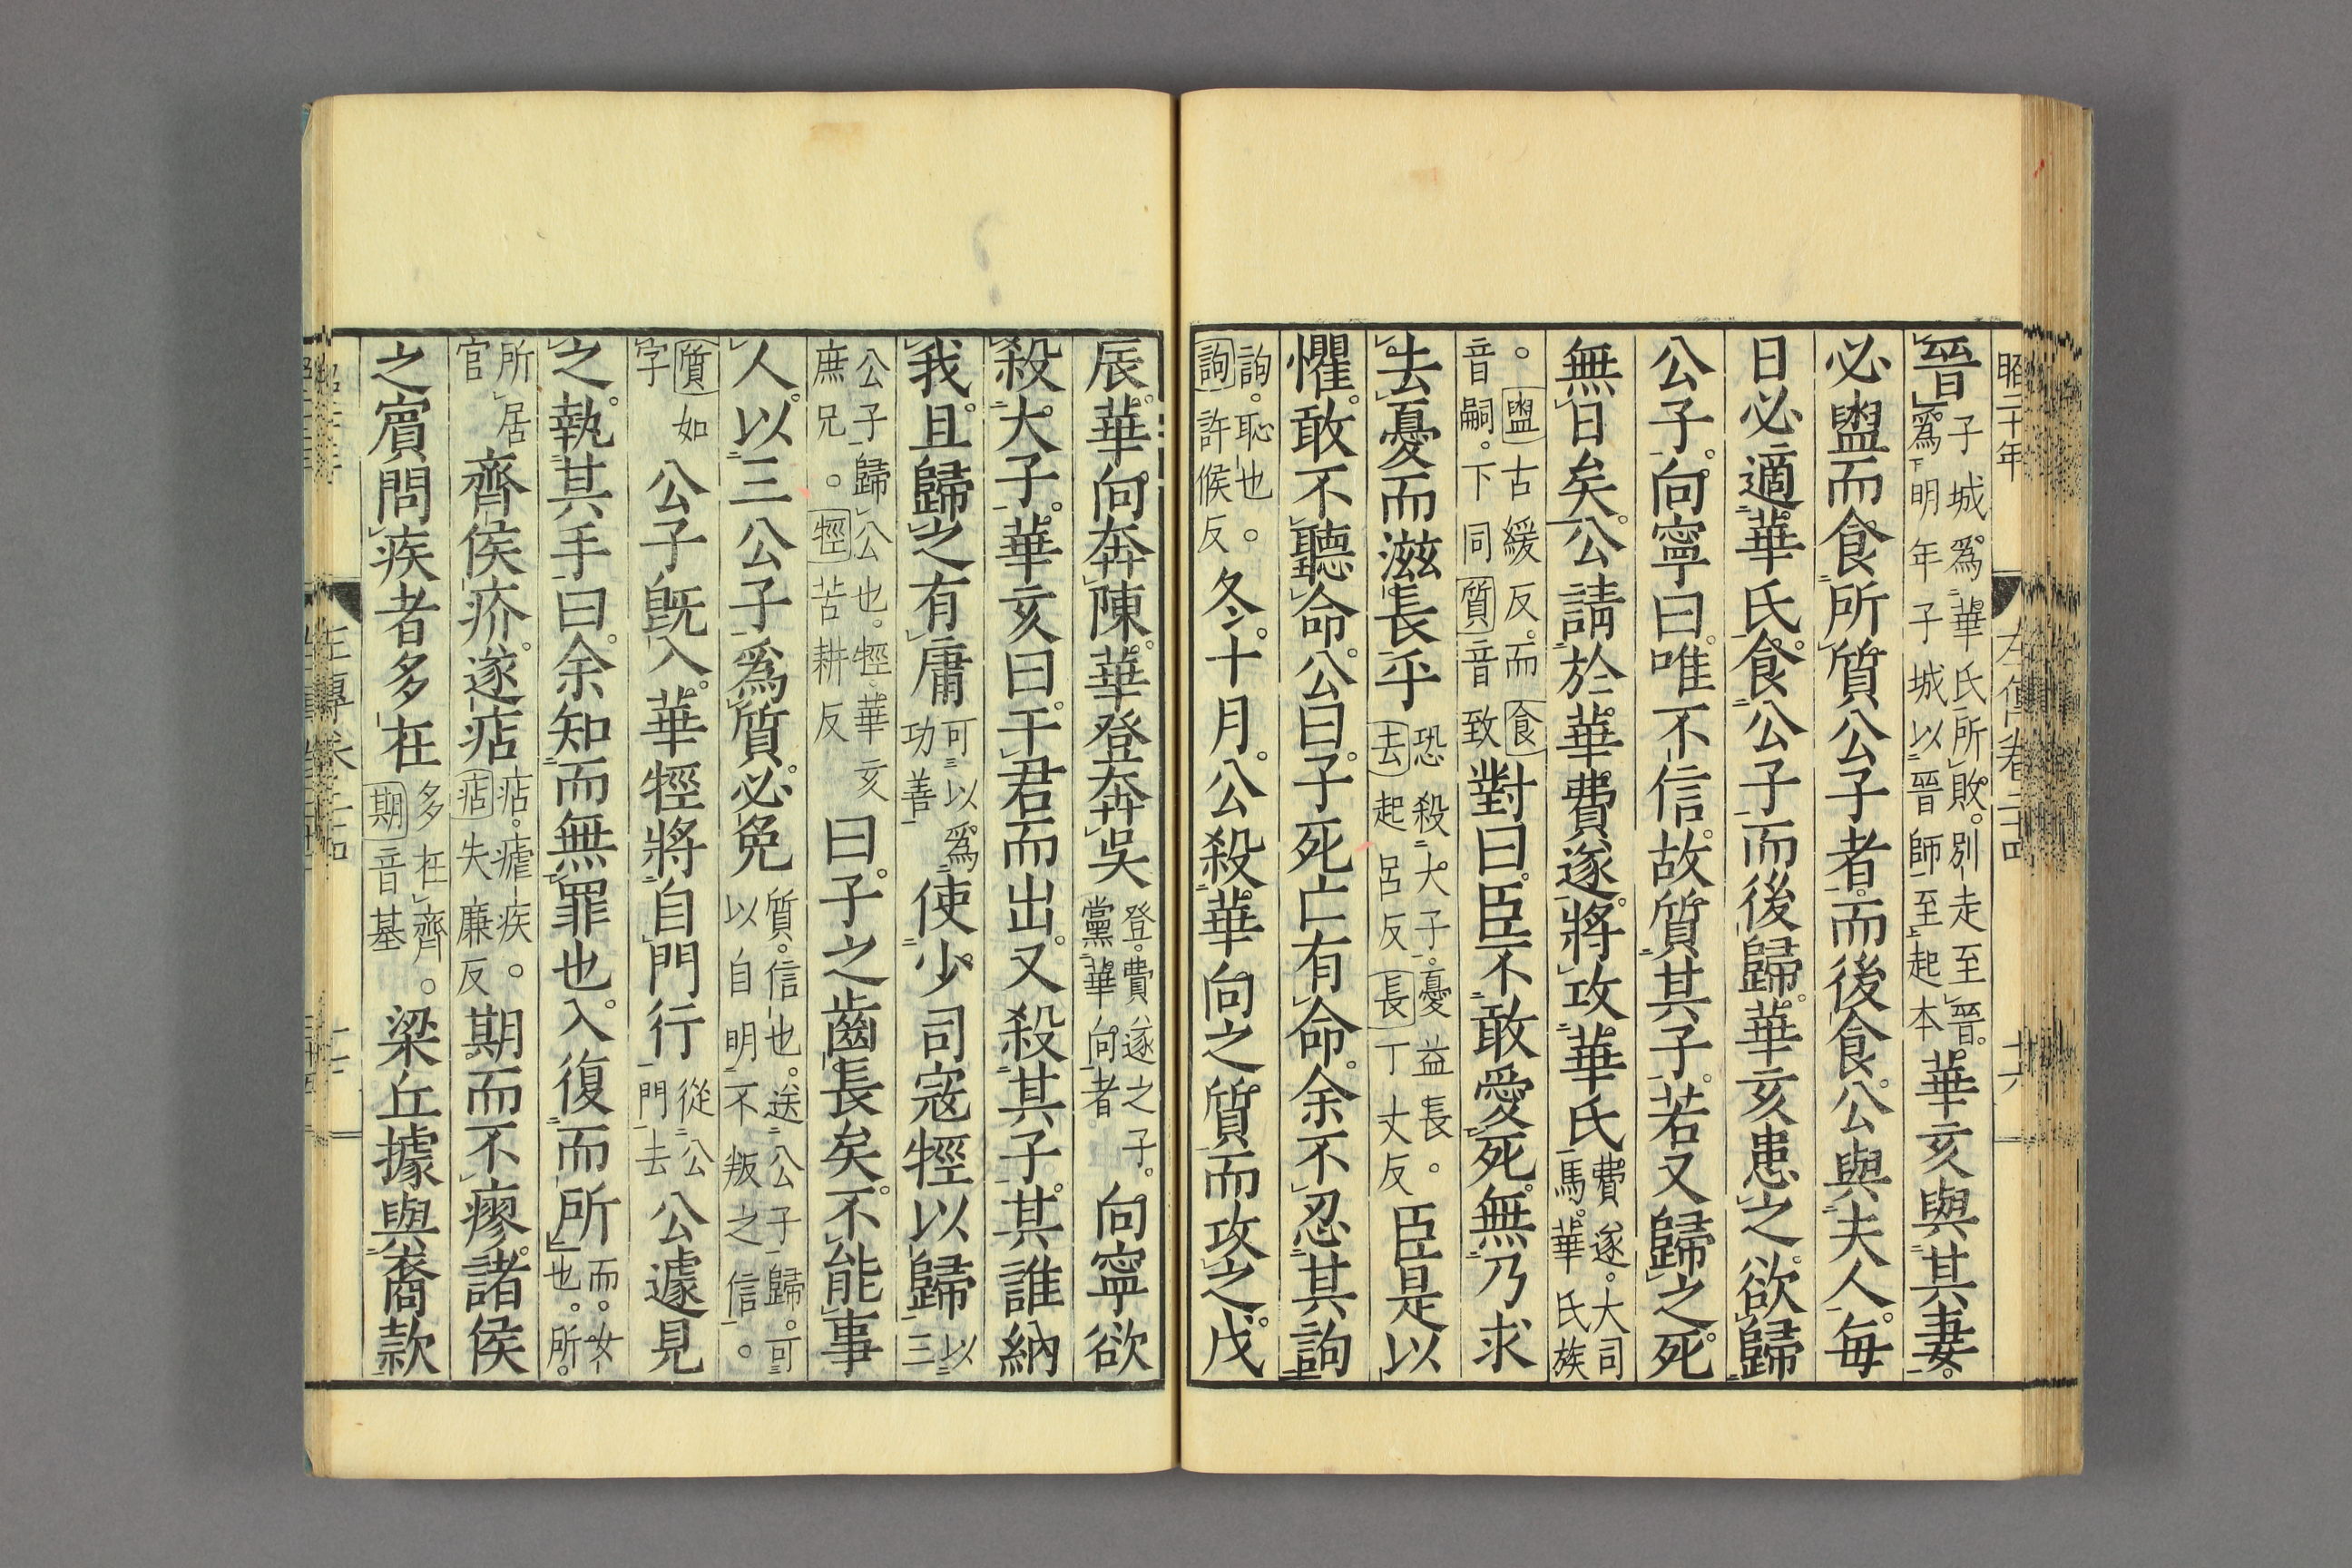 昭二十年　左傳卷二十四　十六
晉子城爲華氏所敗別走至晉爲明年子城以晉師至起本華亥與其妻
必盥而食所質公子者而後食公與夫人每
日必適華氏食公子而後歸華亥患之欲歸
公子向寧曰唯不信故質其子若又歸之死
無日矣公請於華費遂將攻華氏費遂大司馬華氏族
○盥古緩反而食音嗣下同質音致對曰臣不敢愛死無乃求
去憂而滋長乎恐殺大子憂益長○去起呂反長丁丈反臣是以
懼敢不聽命公曰子死亡有命余不忍其訽
訽恥也○訽許候反冬十月公殺華向之質而攻之戊
辰華向奔陳華登奔吳登費遂之子黨華向者向寧欲
殺大子華亥曰干君而出又殺其子其誰納
我且歸之有庸可以爲功善使少司寇牼以歸以三
公子歸公也牼華亥庶兄○牼苦耕反曰子之齒長矣不能事
人以三公子爲質必免質信也送公子歸可以自明不叛之信○
質如字公子旣入華牼將自門行從公門去公遽見
之執其手曰余知而無罪也入復而所而女也所
所居官齊侯疥遂痁痁瘧疾○痁失廉反期而不瘳諸侯
之賓問疾者多在多在齊○期音基梁丘據與裔款